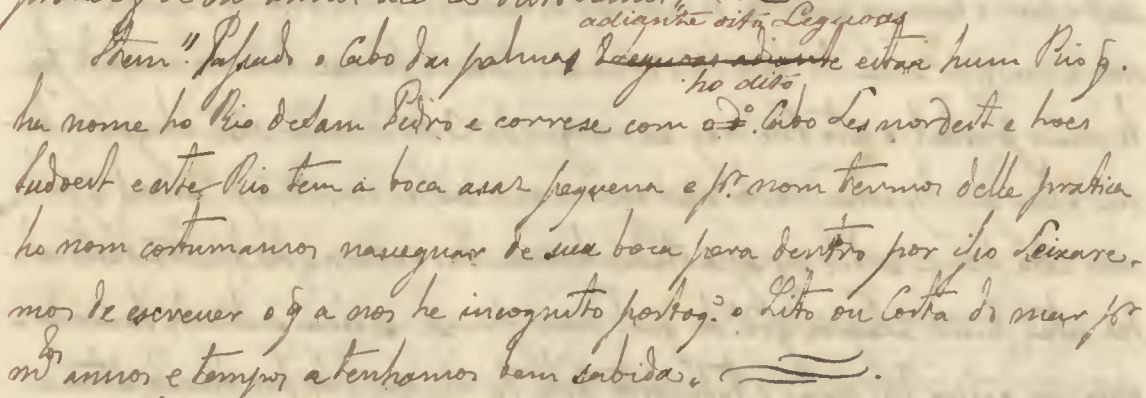 adiante oito Leguoas
Item." Passado o Cabo das palmas Leguoas adiante estaa hum Rio q̃.
ho dito
ha nome ho Rio de Sam Pedro e correse com o d.º Cabo Lesnordest e hoes
sudoest e este Rio tem a boca asaz pequena e p.r nom termos delle pratica
ho nom costumamos naueguar de sua boca para dentro por isso Leixare-
mos de escreuer o q̃ a nos he incognito postoq.̃ o Lito ou Costa do mar p.r
m.tos annos e tempos a tenhamos bem sabida.